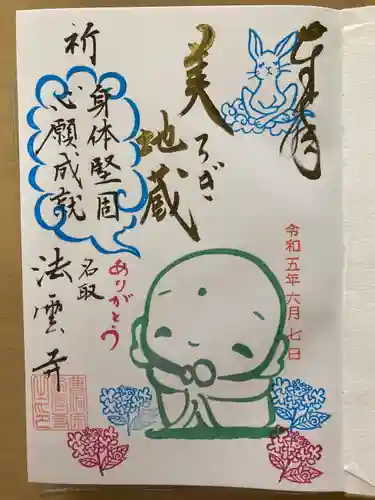 奉拝
美
うさぎ
地蔵
祈
身体堅固
心願成就
令和五年六月七日
ありがとう
名取
法雲寺